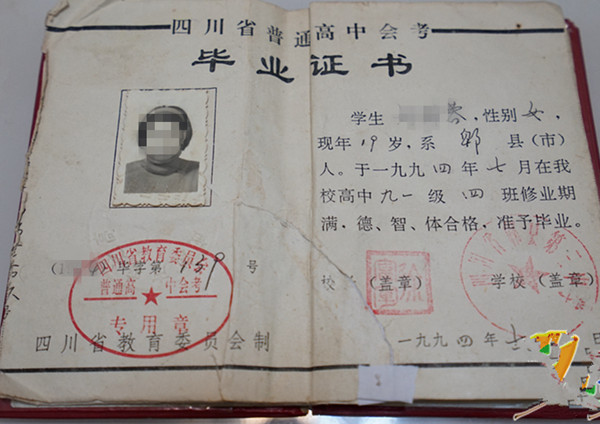 四川省普通高中会考
毕业证书
学生 蓉,性别女,
现年19岁,系郫县(市)
人。于一九九四年七月在我
校高中九一级四班修业期
满,德、智、体合格,准予毕业。
毕字第 159 号
校 (盖章) 学校(盖章)
四川省教育委员会
普通高中会考
专用章
四川省教育委员会制
一九九四年七